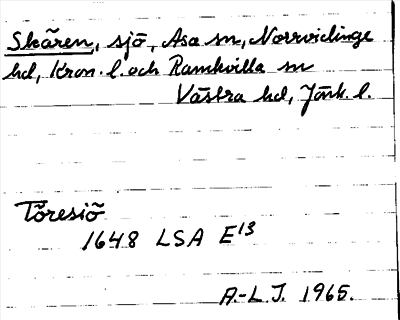 Skären, sjö, Asa sn, Norrvidinge
hd, Kron. l. och Ramkvilla sn
Västra hd, Jönk. l.
Töresiö
1648 LSA E13
A.-L.J. 1965.